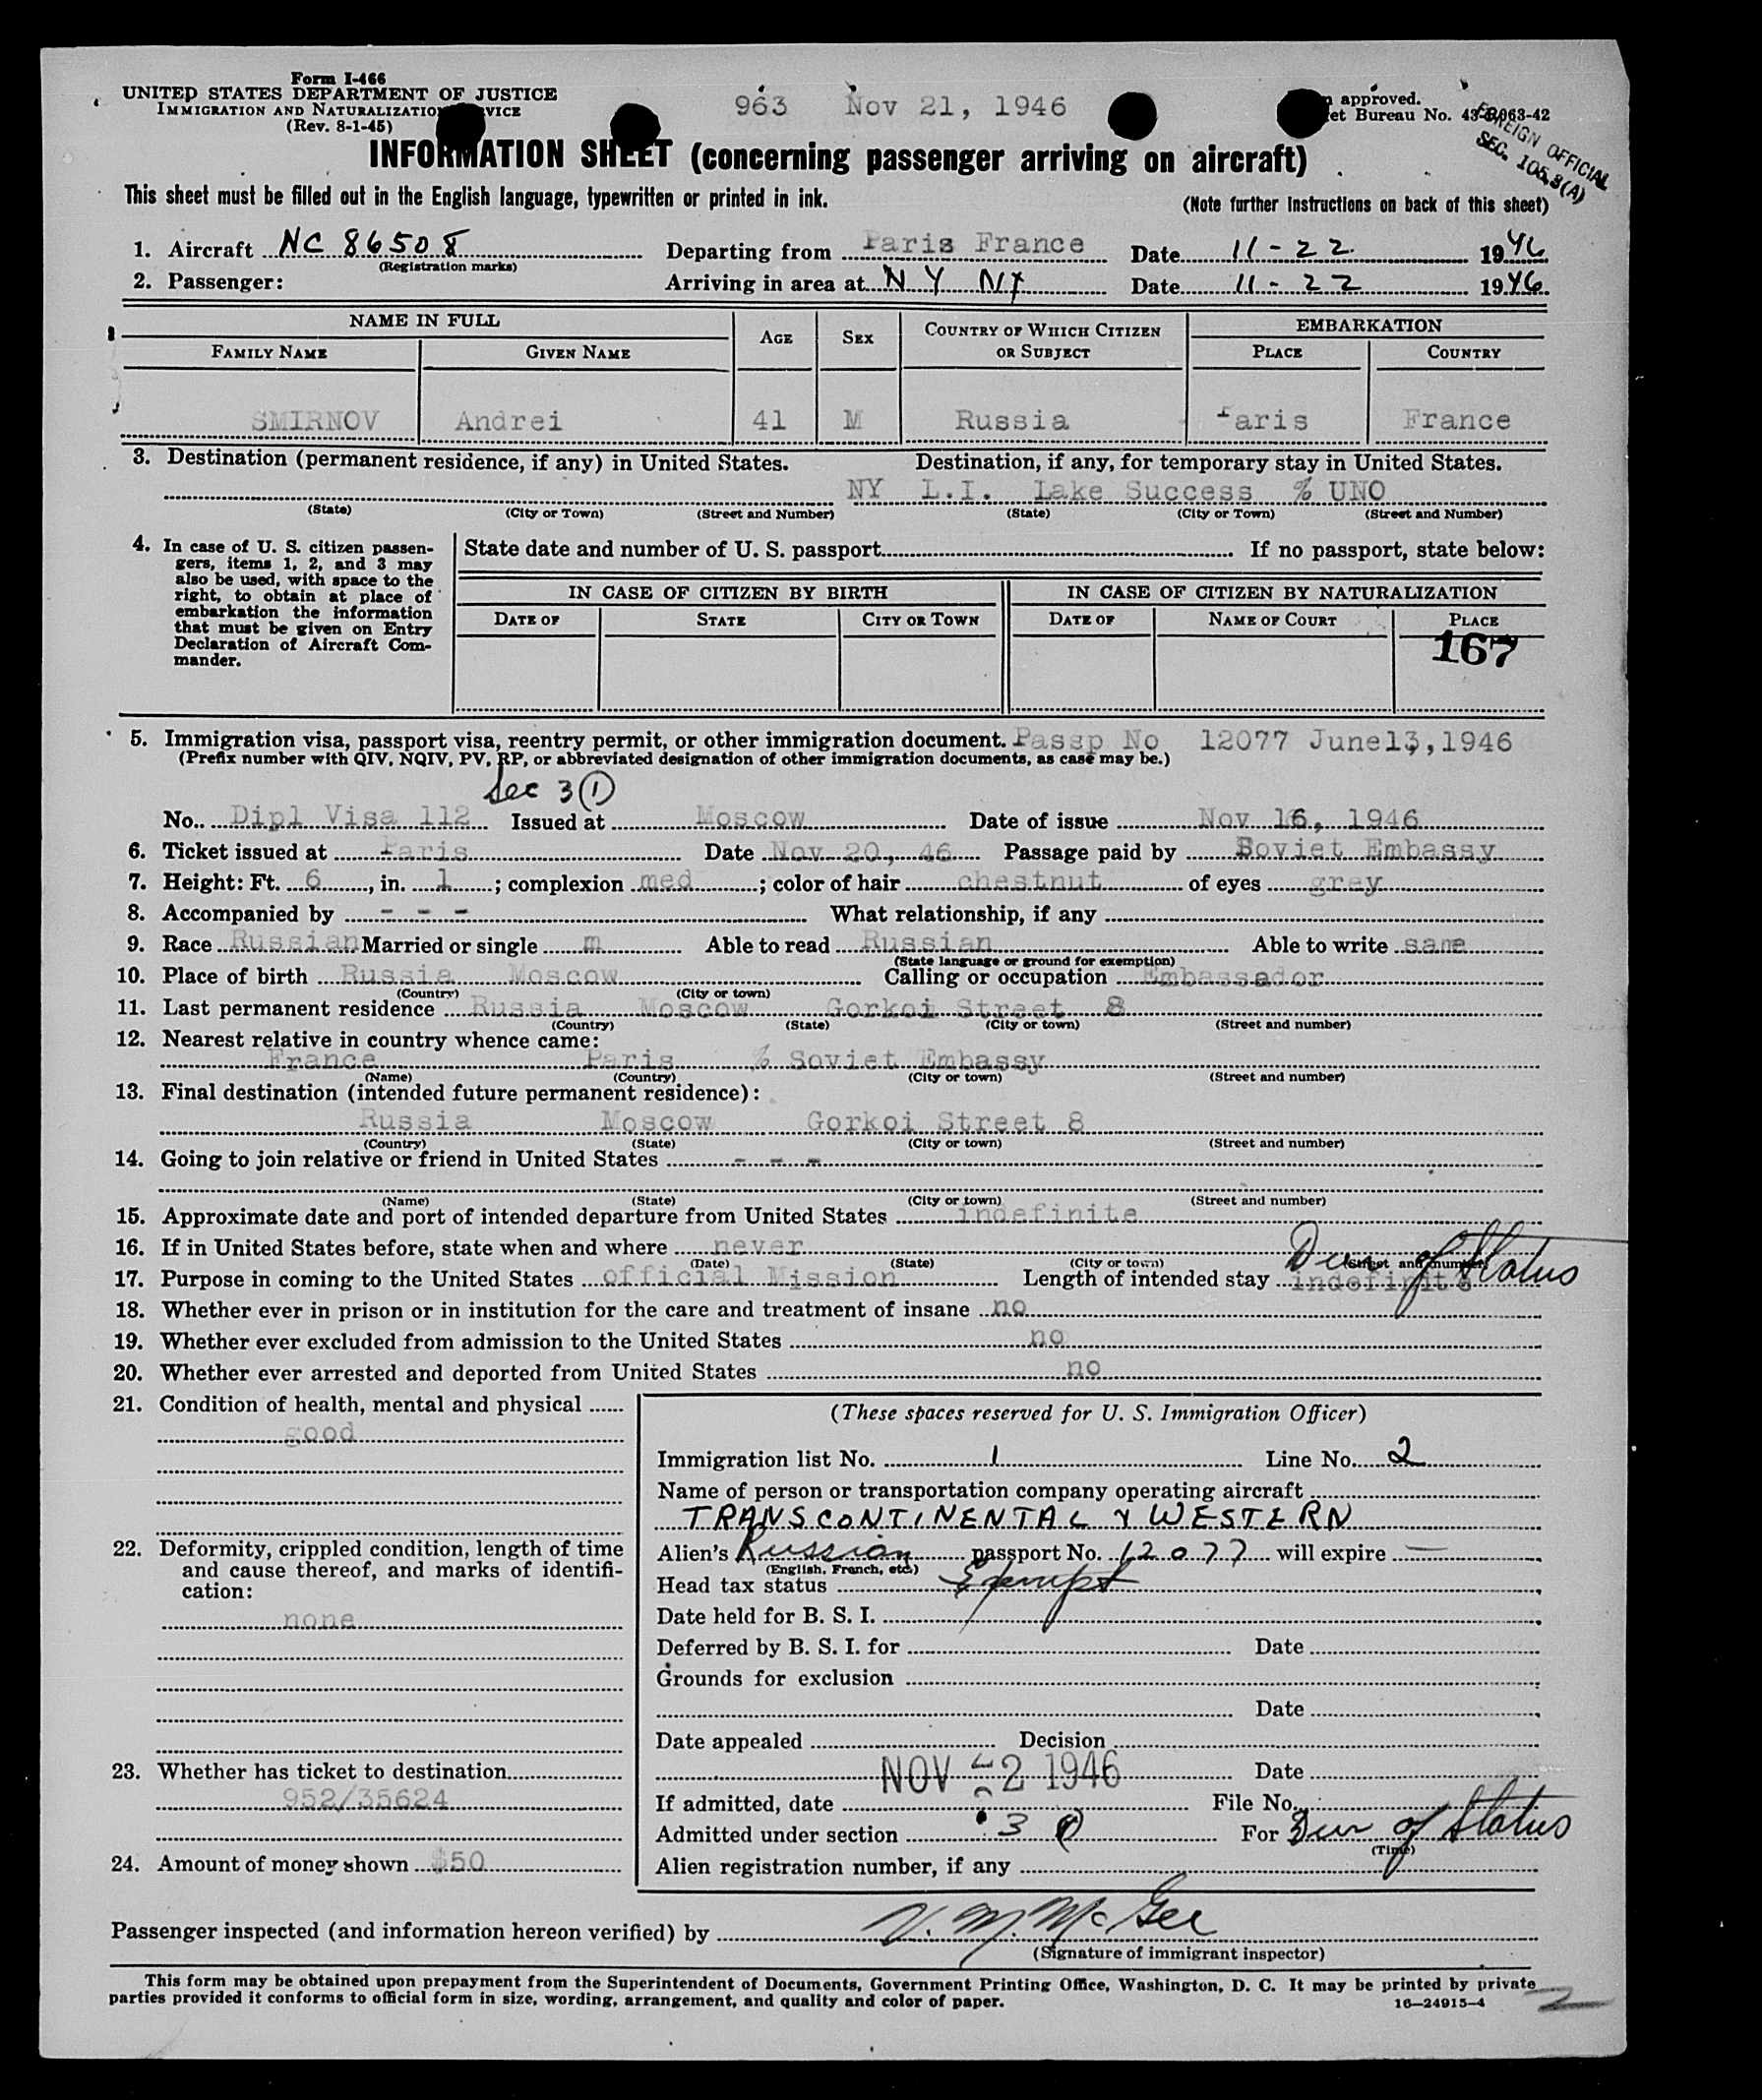 Form I-466
UNITED STATES DEPARTMENT OF JUSTICE
IMMIGRATION AND NATURALIZATIO VICE
(Rev. 8-1-45)
963 Nov 21, 1946
approved.
et Bureau No. 43-R063-42
FOREIGN OFFICIAL
SEC. 105.3(A)
INFORMATION SHEET (concerning passenger arriving on aircraft)
This sheet must be filled out in the English language, typewritten or printed in ink.
(Note further Instructions on back of this sheet)
1. Aircraft NC 86508 Departing from Paris France Date 11-22 1946
(Registration marks)
2. Passenger: Arriving in area at NY NY Date 11-22 1946.
NAME IN FULL AGE SEX COUNTRY OF WHICH CITIZEN OR SUBJECT EMBARKATION
FAMILY NAME GIVEN NAME PLACE COUNTRY
SMIRNOV Andrei 41 M Russia Paris France
3. Destination (permanent residence, if any) in United States. Destination, if any, for temporary stay in United States.
NY L.I. Lake Success % UNO
(State) (City or Town) (Street and Number) (State) (City or Town) (Street and Number)
4. In case of U. S. citizen passen-
gers, items 1, 2, and 3 may
also be used, with space to the
right, to obtain at place of
embarkation the information
that must be given on Entry
Declaration of Aircraft Com-
mander.
State date and number of U. S. passport If no passport, state below:
IN CASE OF CITIZEN BY BIRTH IN CASE OF CITIZEN BY NATURALIZATION
DATE OF STATE CITY OR TOWN DATE OF NAME OF COURT PLACE
167
5. Immigration visa, passport visa, reentry permit, or other immigration document. Passp No 12077 June13,1946
(Prefix number with QIV, NQIV, PV, RP, or abbreviated designation of other immigration documents, as case may be.)
Sec 3(1)
No. Dipl Visa 112 Issued at Moscow Date of issue Nov 16, 1946
6. Ticket issued at Paris Date Nov 20, 46 Passage paid by Soviet Embassy
7. Height: Ft. 6, in. 1; complexion med; color of hair chestnut of eyes gray
8. Accompanied by - - - What relationship, if any
9. Race Russian Married or single m Able to read Russian Able to write same
(State language or ground for exemption)
10. Place of birth Russia Moscow Calling or occupation Embassador
(Country) (City or town)
11. Last permanent residence Russia Moscow Gorkoi Street 8
(Country) (State) (City or town) (Street and number)
12. Nearest relative in country whence came:
France Paris % Soviet Embassy
(Name) (Country) (City or town) (Street and number)
13. Final destination (intended future permanent residence):
Russia Moscow Gorkoi Street 8
(Country) (State) (City or town) (Street and number)
14. Going to join relative or friend in United States - - -
(Name) (State) (City or town) (Street and number)
15. Approximate date and port of intended departure from United States indefinite
16. If in United States before, state when and where never
(Date) (State) (City or town) (Street and number)
Dur of Status
17. Purpose in coming to the United States official Mission Length of intended stay indefinite
18. Whether ever in prison or in institution for the care and treatment of insane no
19. Whether ever excluded from admission to the United States no
20. Whether ever arrested and deported from United States no
21. Condition of health, mental and physical
good
22. Deformity, crippled condition, length of time
and cause thereof, and marks of identifi-
cation:
none
23. Whether has ticket to destination
952/35624
24. Amount of money shown $50
(These spaces reserved for U. S. Immigration Officer)
Immigration list No. 1 Line No. 2
Name of person or transportation company operating aircraft
TRANSCONTINENTAL & WESTERN
Alien's Russian passport No. 12077 will expire —
(English, French, etc.)
Head tax status Exempt
Date held for B. S. I.
Deferred by B. S. I. for Date
Grounds for exclusion
Date
Date appealed Decision
NOV 22 1946 Date
If admitted, date File No.
Admitted under section 3 (1) For Dur of Status
(Time)
Alien registration number, if any
Passenger inspected (and information hereon verified) by V. M. McGee
(Signature of immigrant inspector)
This form may be obtained upon prepayment from the Superintendent of Documents, Government Printing Office, Washington, D. C. It may be printed by private
parties provided it conforms to official form in size, wording, arrangement, and quality and color of paper.
16—24915-4
2